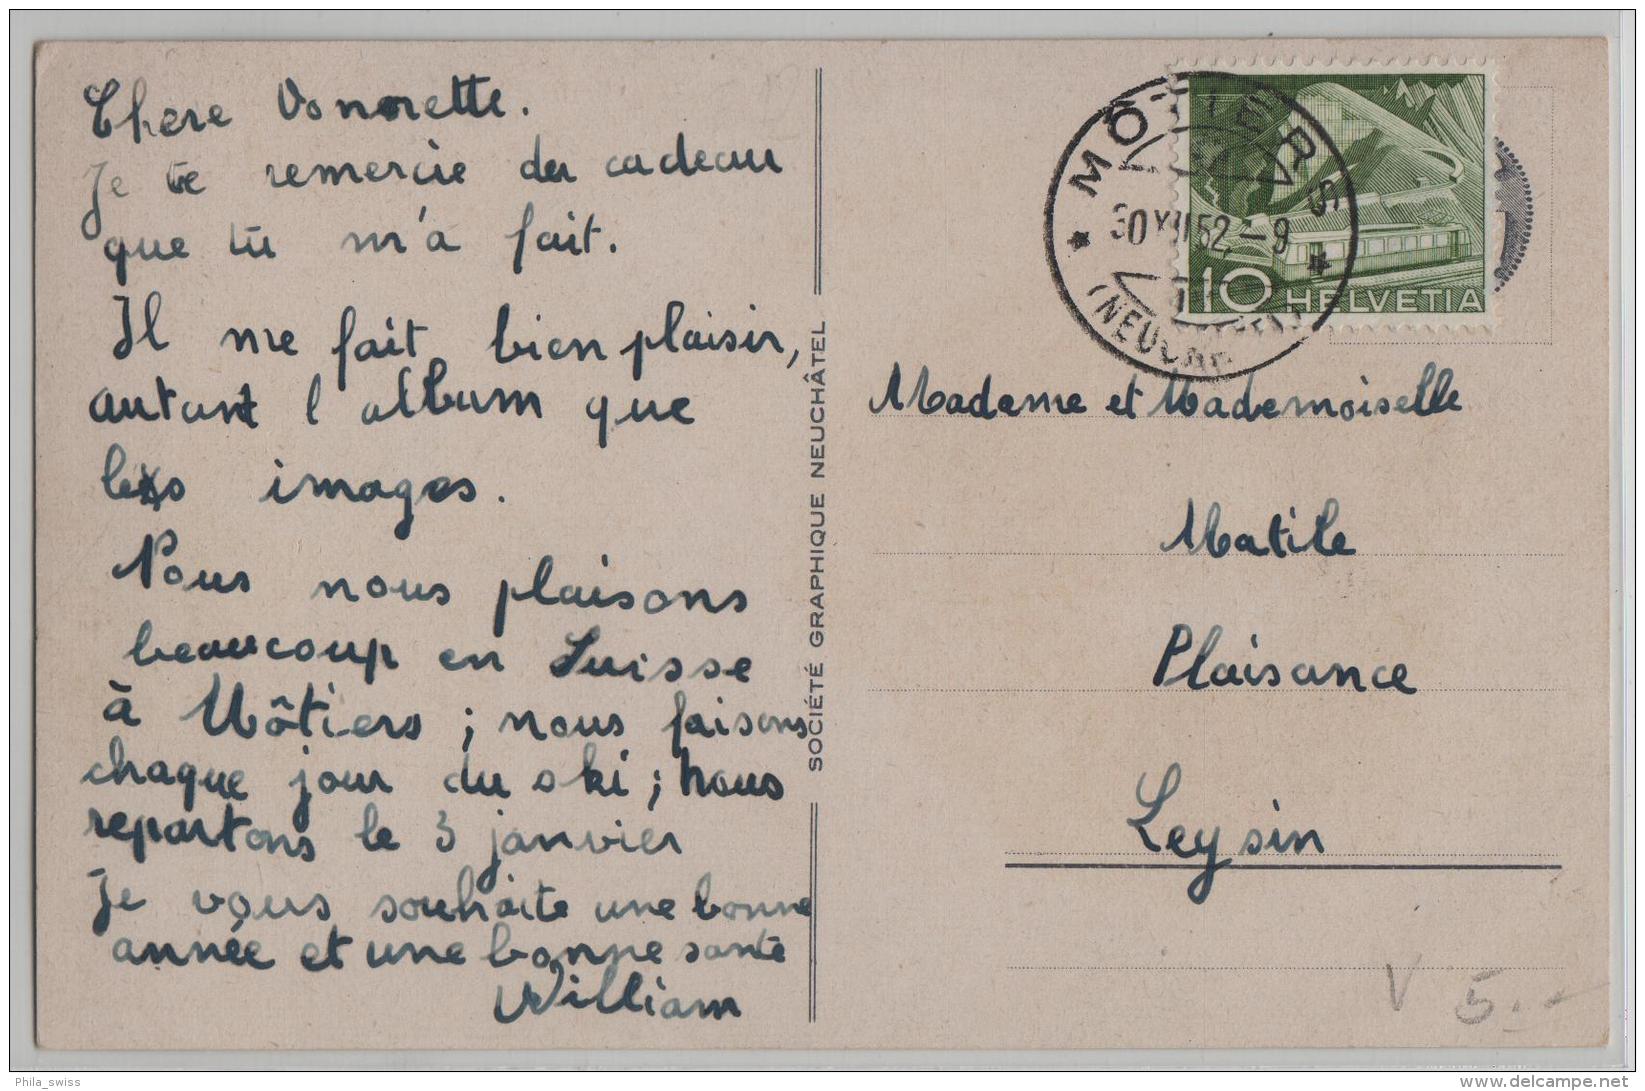 Chere Vonorette.
Je te remercie du cadeau
que tu m'a fait.
Il me fait bien plaisir,
autant l'album que
les images.
Nous nous plaisons
beaucoup en Suisse
à Môtiers ; nous faisons
chaque jour du ski ; nous
repartons le 3 janvier
Je vous souhaite une bonne
année et une bonne santé
William
SOCIÉTÉ GRAPHIQUE NEUCHÂTEL
MÔTIERS
30 XII 52 - 9
(NEUCHÂTEL)
10 HELVETIA
Madame et Mademoiselle
Matile
Plaisance
Leysin
V 5.-
Phila_swiss
delcampe.net